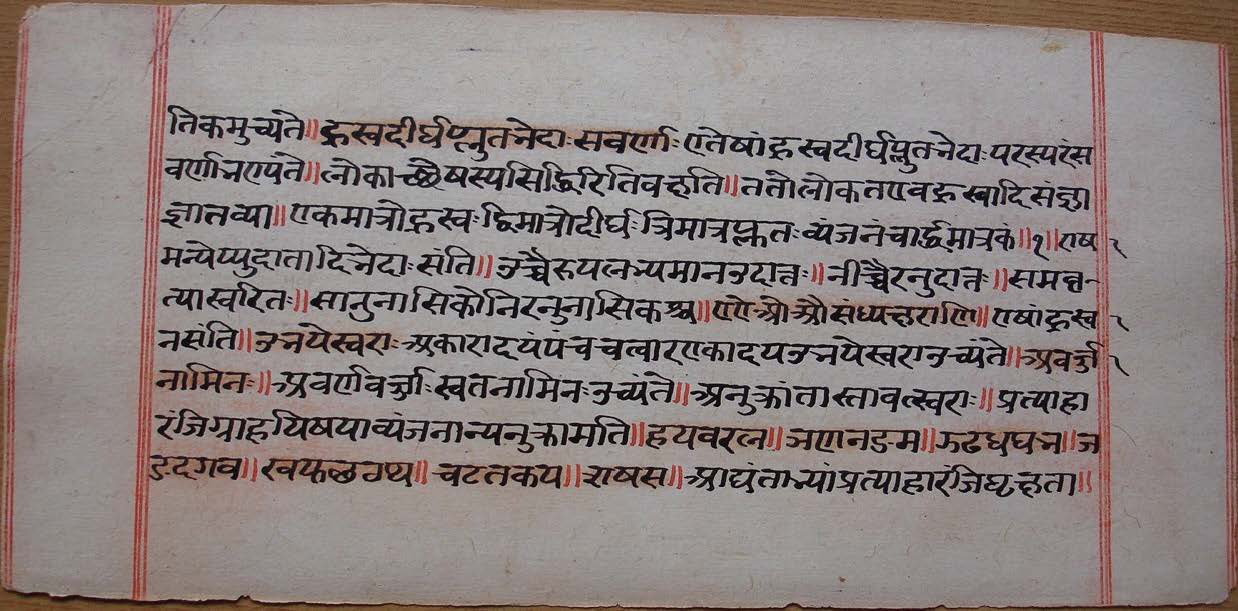 तिकमुच्यंते॥ह्रस्वदीर्घप्लुतभेदाःसवर्णाःएतेषांह्रस्वदीर्घप्लुतभेदाःपरस्परंस
वर्णाभण्यंते॥लोकाच्छेषस्यसिद्धिरितिवक्ष्यति॥ततोलोकतएवह्रस्वादिसंज्ञा
ज्ञातव्या॥एकमात्रोह्रस्वःद्विमात्रोदीर्घःत्रिमात्रप्लुतःव्यंजनंचार्द्धमात्रकं॥१॥एष
मन्येप्युदातादिभेदाःसंति॥उच्चैरुपलभ्यमानउदात्तः॥नीच्चैरनुदात्तः॥समवृ
त्यास्वरितः॥सानुनासिकोनिरनुनासिकश्च॥एऐओऔसंध्यक्षराणि॥एषांह्रस्व
नसंति॥उभयेस्वराःअकारादयंपंचचत्वारएकादयउभयेस्वराउच्यंते॥अवर्ज्जा
नामिनः॥अवर्णवर्ज्जाःस्वतनामिनःउच्यंते॥अनुक्रांतास्तावत्स्वराः॥प्रत्याहा
रंजिग्राहयिषयाव्यंजनान्यनुक्रामति॥हयवरल॥ञणनङम॥झढधघभ॥ज
डदगब॥खफछठथ॥चटतकप॥शषस॥आद्यंताभ्यांप्रत्याहारंजिघृक्षता॥